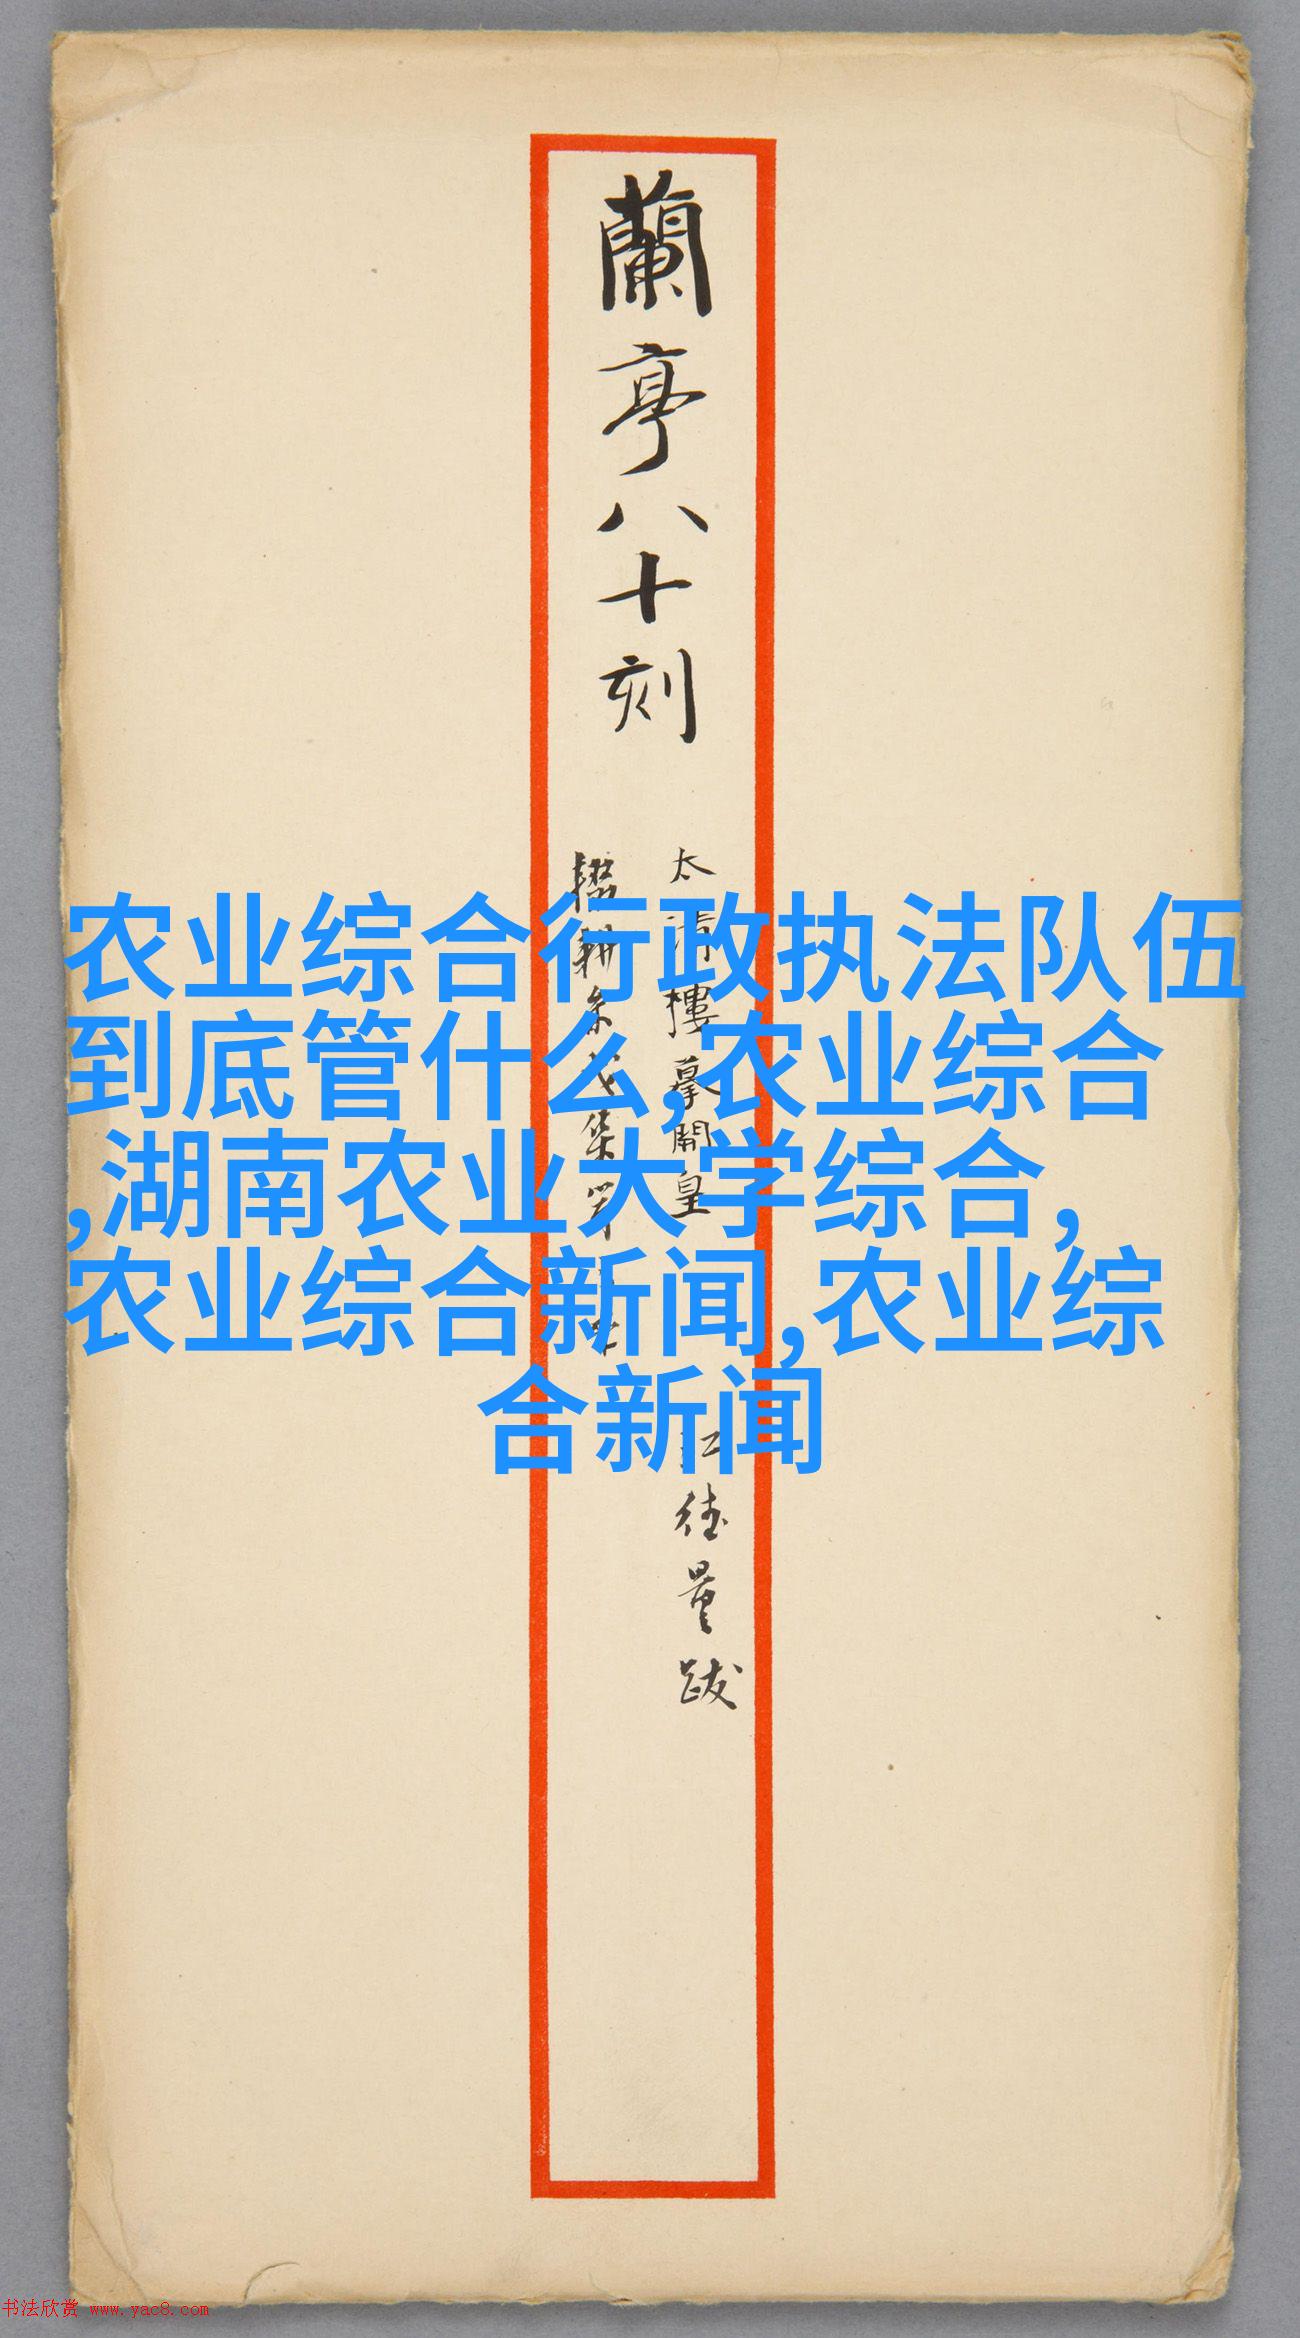 蘭亭八十刻
太清樓摹開皇
江德量跋
农业综合行政执法队伍
到底管什么,农业综合
,湖南农业大学综合,
农业综合新闻,农业综
合新闻
书法欣赏 www.yac8.com